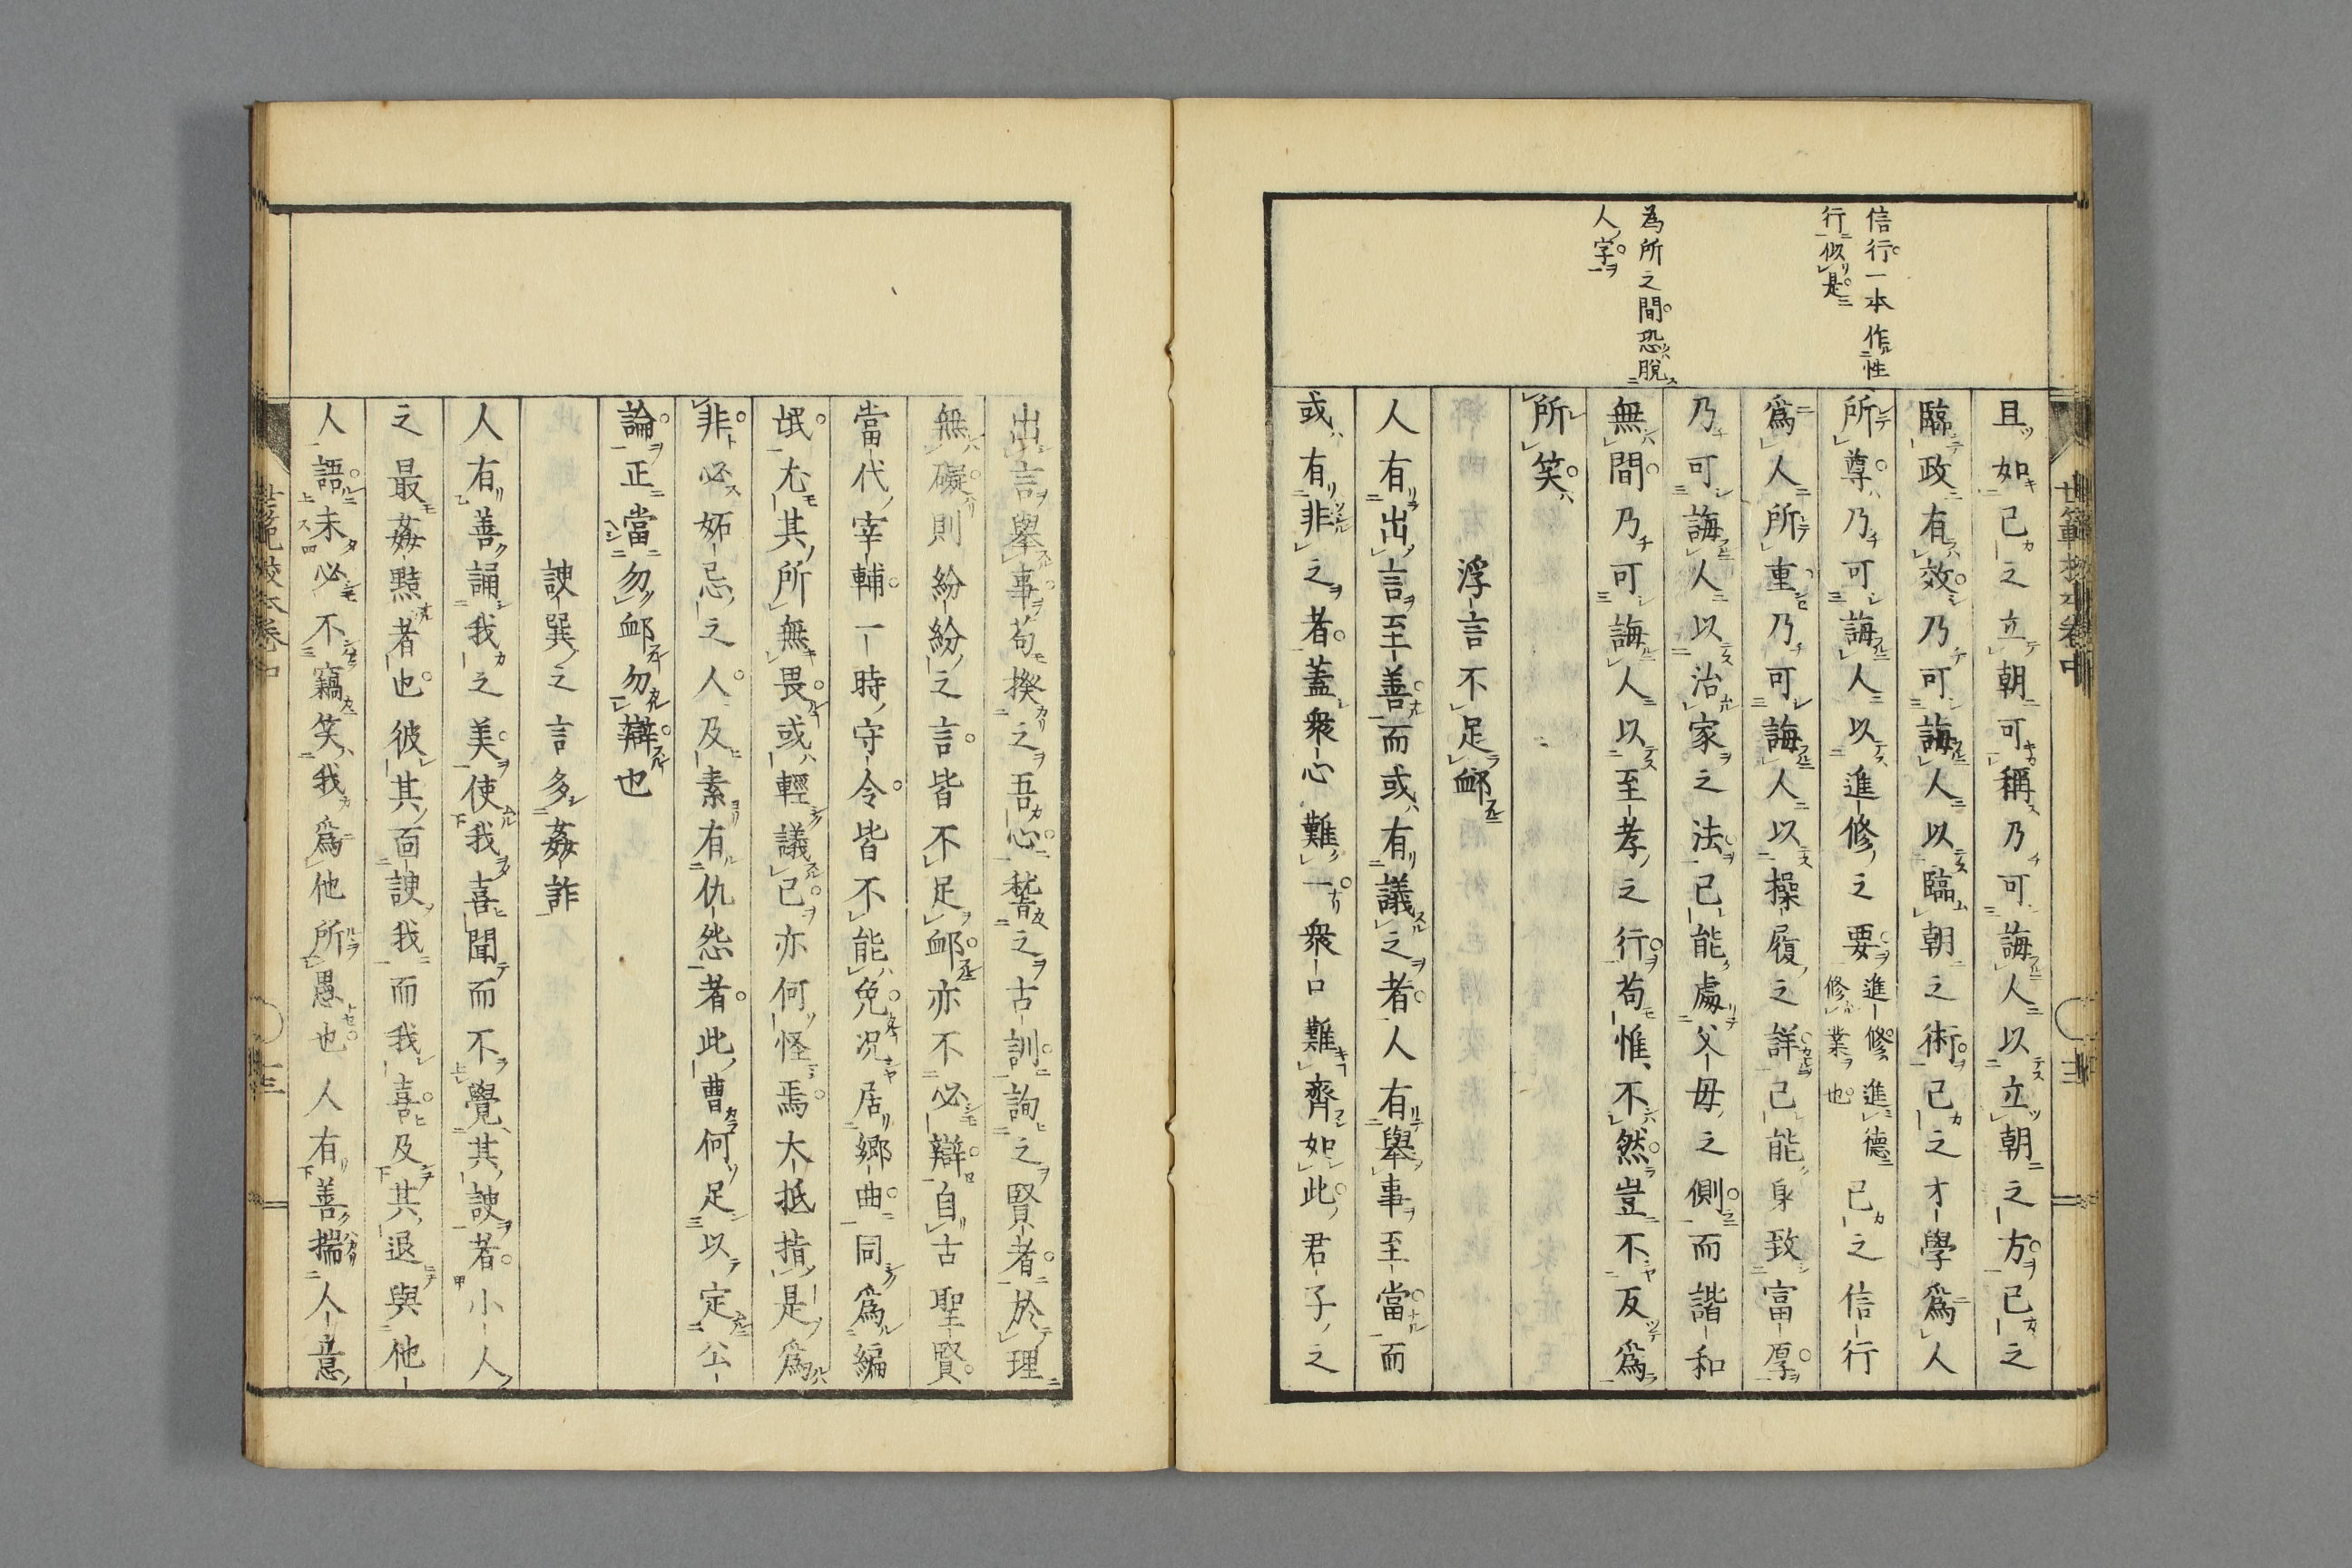 信行一本作性
行似是
為所之間恐脫
人字
世範校本卷中
且如己之立朝可稱乃可誨人以立朝之方己之
臨政有效乃可誨人以臨朝之術己之才學爲人
所尊乃可誨人以進修之要進修進德修業也己之信行
爲人所重乃可誨人以操履之詳己能身致富厚
乃可誨人以治家之法己能處父母之側而諧和
無間乃可誨人以至孝之行苟惟不然豈不反爲
所笑
浮言不足衈
人有出言至善而或有議之者人有舉事至當而
或有非之者蓋衆心難一衆口難齊如此君子之
出言舉事苟揆之吾心稽之古訓詢之賢者於理
無礙則紛紛之言皆不足衈亦不必辯自古聖賢
當代宰輔一時守令皆不能免况居鄉曲同爲編
氓尤其所無畏或輕議己亦何怪焉大抵指是爲
非必妬忌之人及素有仇怨者此曹何足以定公
論正當勿衈勿辯也
諛巽之言多姦詐
人有善誦我之美使我喜聞而不覺其諛者小人
之最姦黠者也彼其面諛我而我喜及其退與他
人語未必不竊笑我爲他所愚也人有善揣人意
世範校本卷中